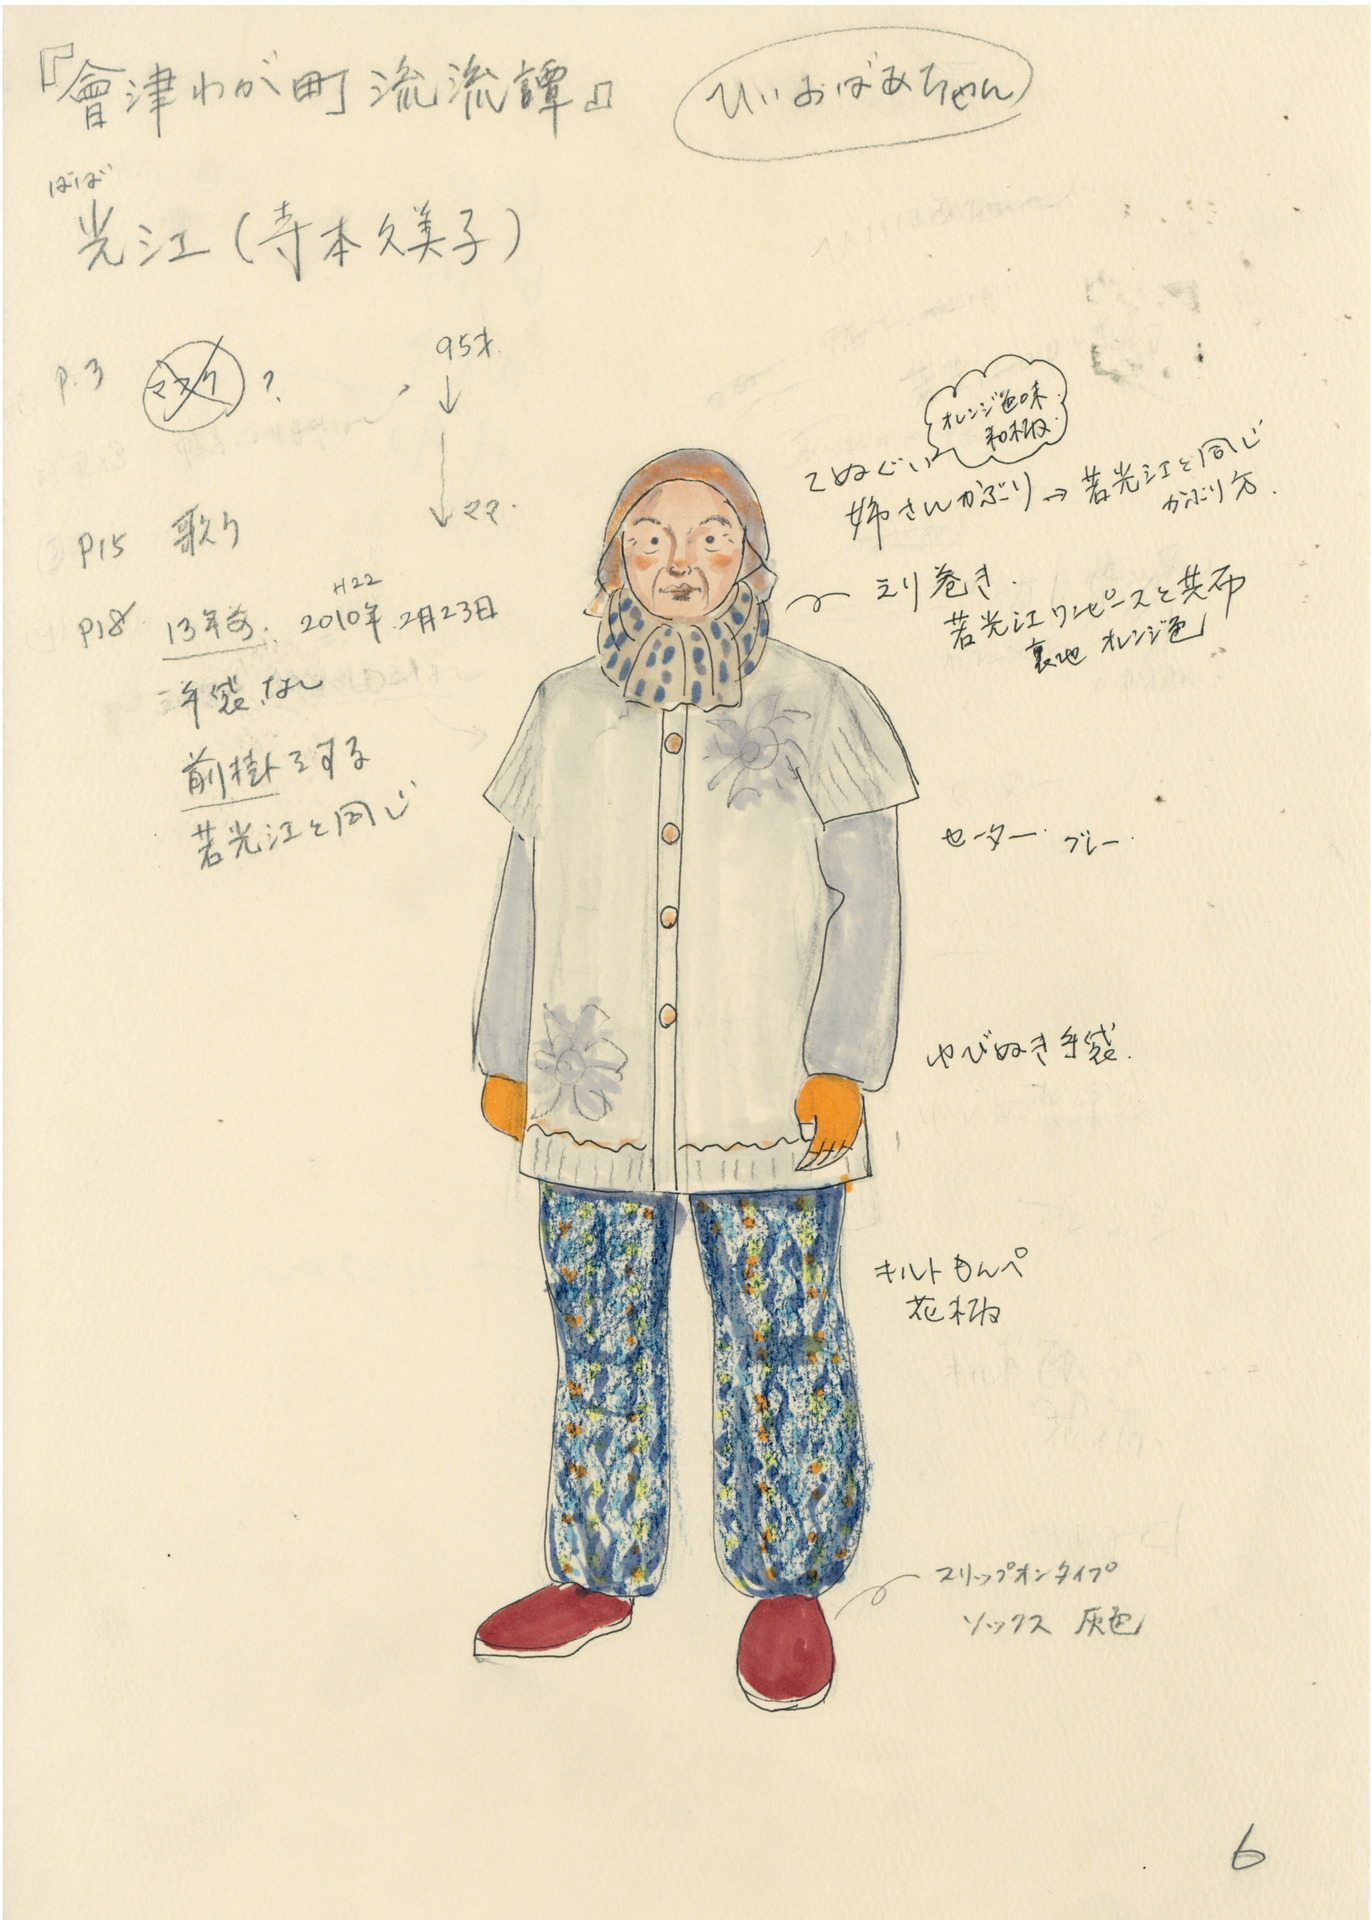 『會津わが町流流譚』
ひいおばあちゃん
ばば
光江(寺本久美子)
P.3 マスク ?
95才
ママ
P15 歌う
P18 13年前: 2010年 2月23日
H22
手袋なし
前掛をする
若光江と同じ
オレンジ色味
和柄
てぬぐい
姉さんかぶり→若光江と同じ
かぶり方.
えり巻き.
若光江ワンピースと共布
裏地 オレンジ色
セーター グレー
ゆびぬき手袋.
キルトもんぺ
花柄
スリップオンタイプ
ソックス 灰色
6